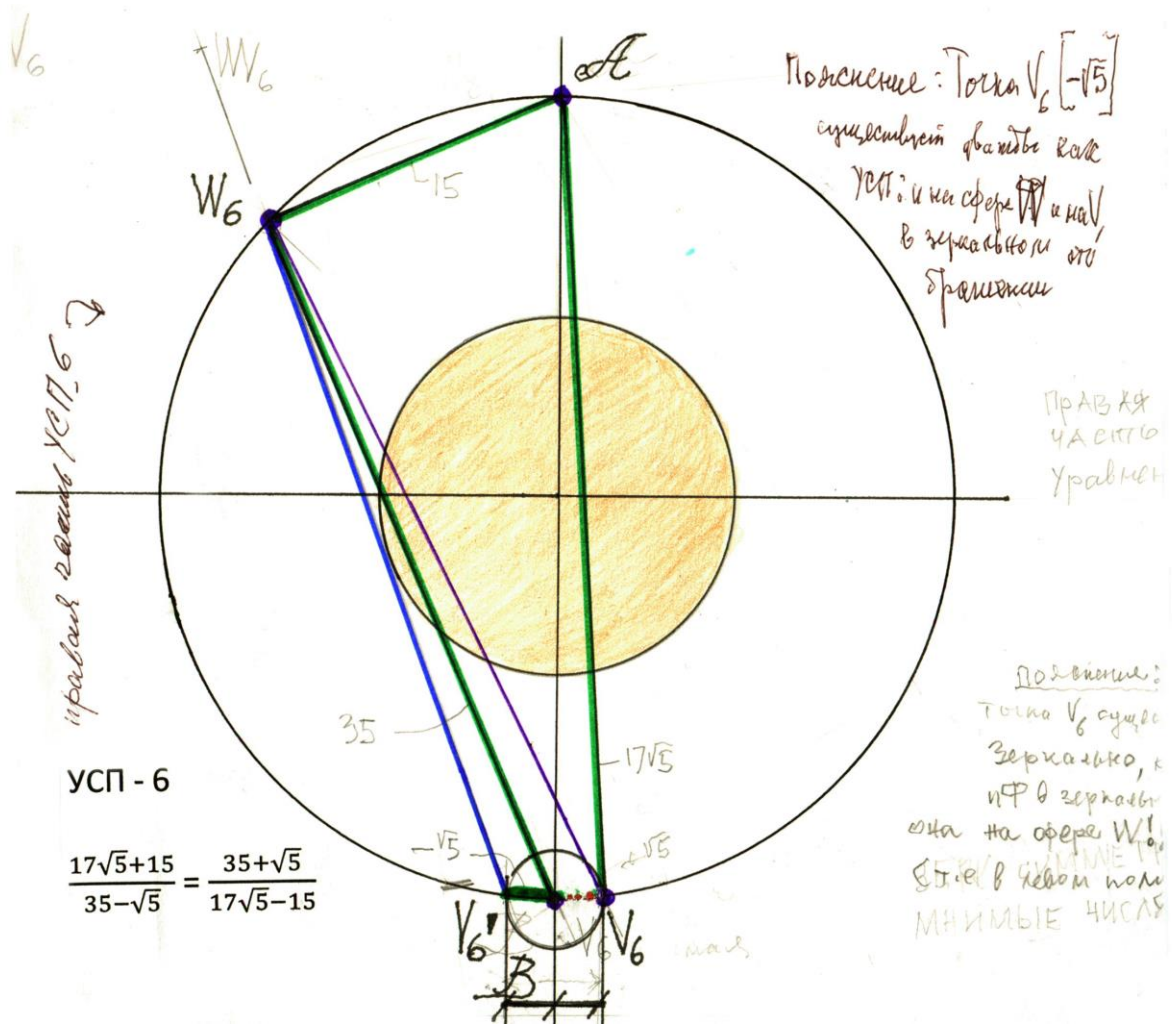 V₆
W₆
A
W₆
15
Пояснение: Точка V₆ [-√5]
существует дважды как
УСП: и на сфере W и на V,
в зеркальном ото
бражении
правая часть УСП_6
ПРАВАЯ
ЧАСТЬ
Уравнен
35
17√5
УСП - 6
(17√5+15)/(35−√5) = (35+√5)/(17√5−15)
−√5
√5
Пояснение:
Точка V₆ сущес
Зеркально, к
она на сфере W!
в левом полу
МНИМЫЕ ЧИСЛА
V₆'
V₆
V₆
B